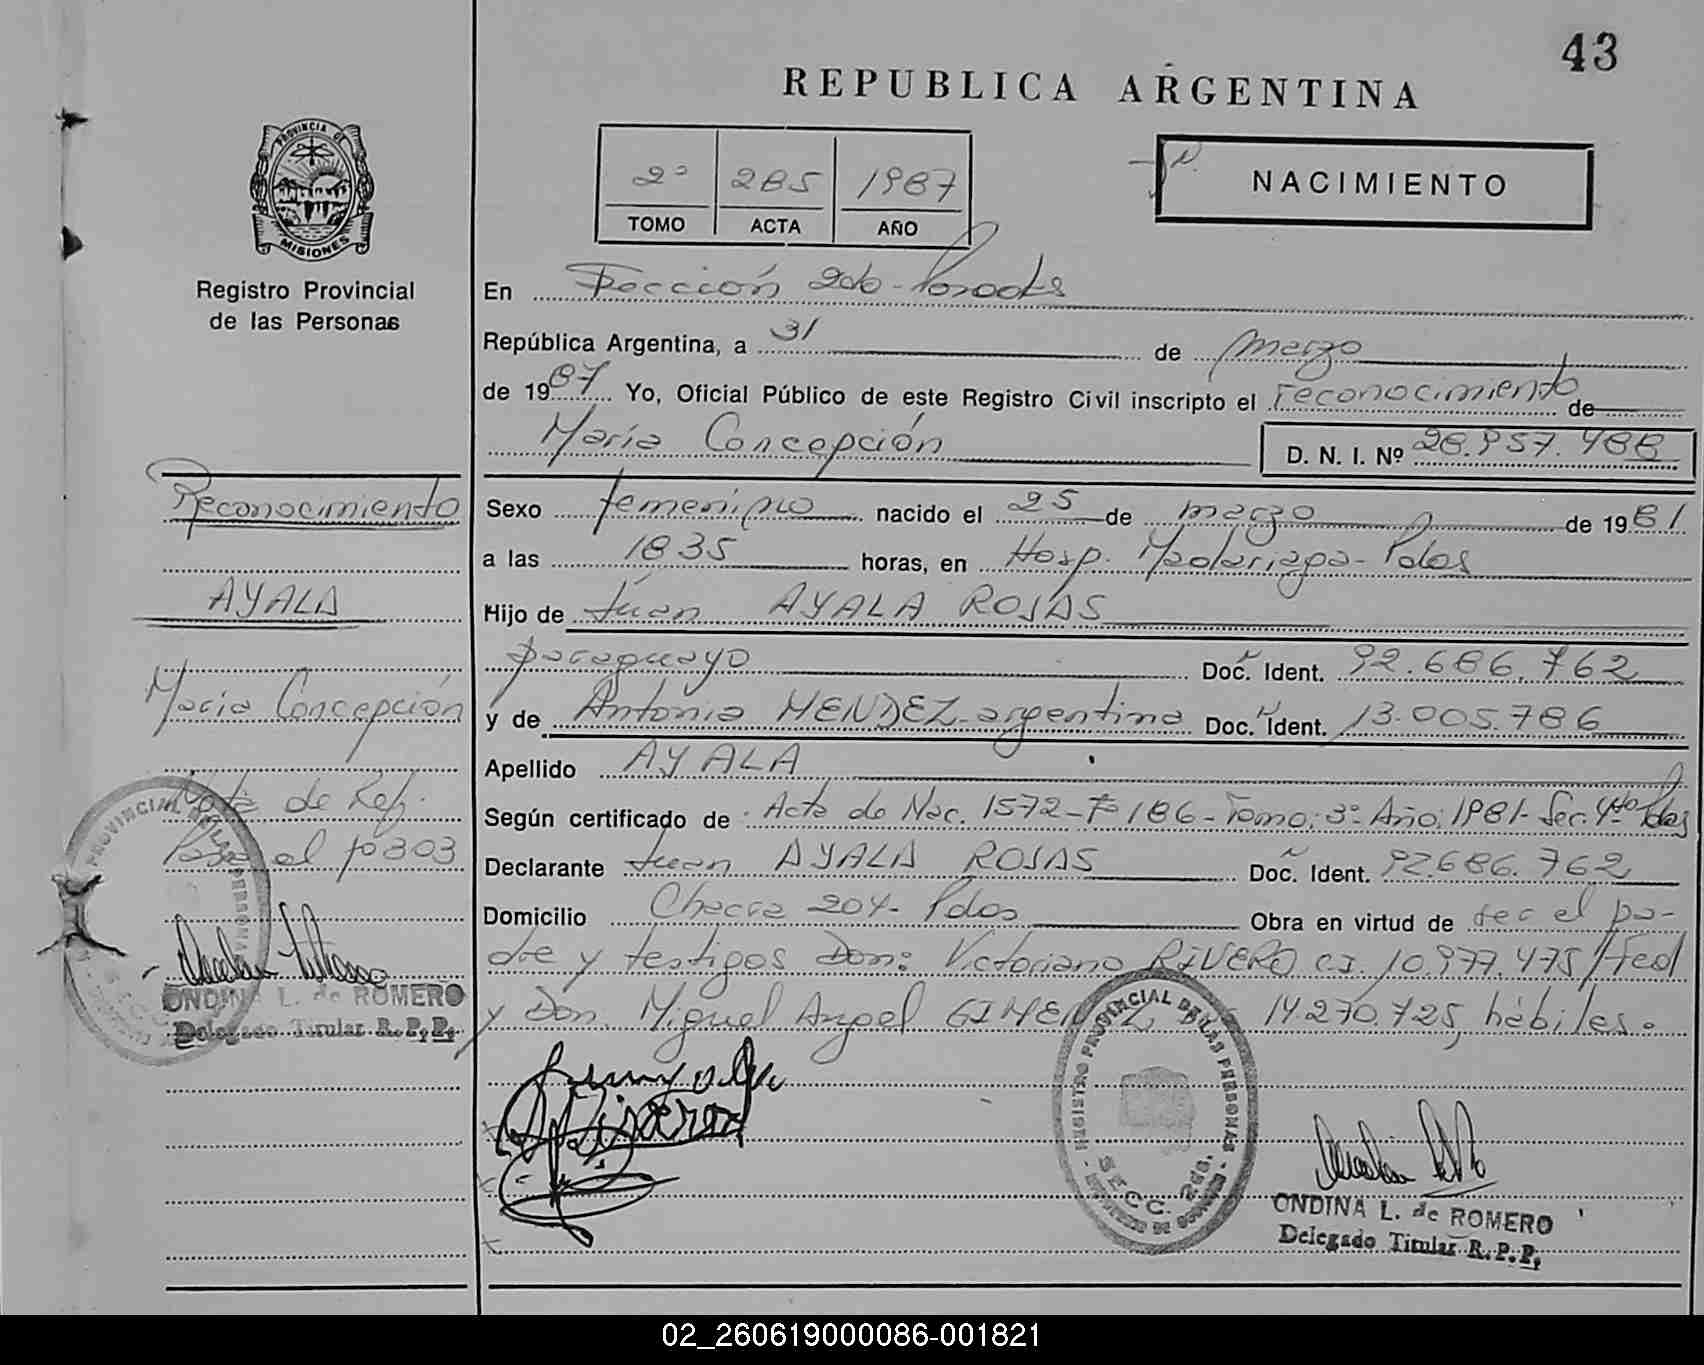 43
REPUBLICA ARGENTINA
2º 285 1987
TOMO ACTA AÑO
NACIMIENTO
PROVINCIA DE
MISIONES
Registro Provincial
de las Personas
En Sección 2da - Posadas
República Argentina, a 31 de marzo
de 1987 Yo, Oficial Público de este Registro Civil inscripto el reconocimiento de
María Concepción D. N. I. Nº 28.957.488
Sexo femenino nacido el 25 de marzo de 1981
a las 1835 horas, en Hosp. Madariaga - Pdas
Hijo de Juan AYALA ROJAS
paraguayo Doc. Ident. 92.686.762
y de Antonia MENDEZ - argentina Doc. Ident. 13.005.786
Apellido AYALA
Según certificado de Acta de Nac. 1572 - Fº 186 - Tomo: 3º Año: 1981 - Sec. 4ta Pdas
Declarante Juan AYALA ROJAS Doc. Ident. 92.686.762
Domicilio Chacra 204 - Pdas Obra en virtud de ser el pa-
dre y testigos Don: Victoriano RIVERO C.I. 10.977.475/Fed
y Don. Miguel Angel GIMENEZ 14.270.725, hábiles.
Reconocimiento
AYALA
María Concepción
Nota de Ref.
Pasa al fº 303
ONDINA L. de ROMERO
Delegado Titular R. P. P.
REGISTRO PROVINCIAL DE LAS PERSONAS
SECC. 2da.
ONDINA L. de ROMERO
Delegado Titular R. P. P.
02_260619000086-001821